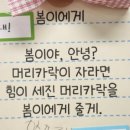 봄이에게
봄이야, 안녕?
머리카락이 자라면
힘이 세진 머리카락을
봄이에게 줄게.